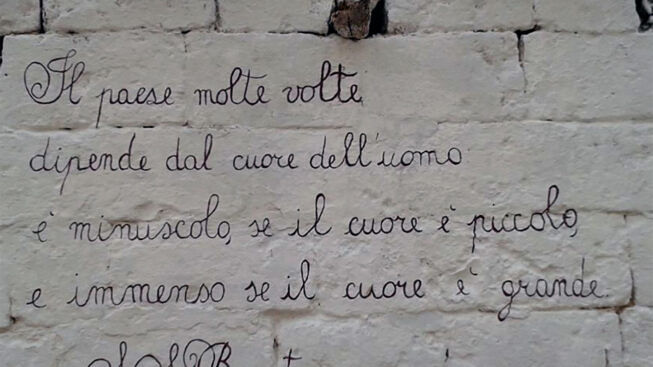 Il paese molte volte
dipende dal cuore dell'uomo
è minuscolo, se il cuore è piccolo,
e immenso se il cuore è grande.